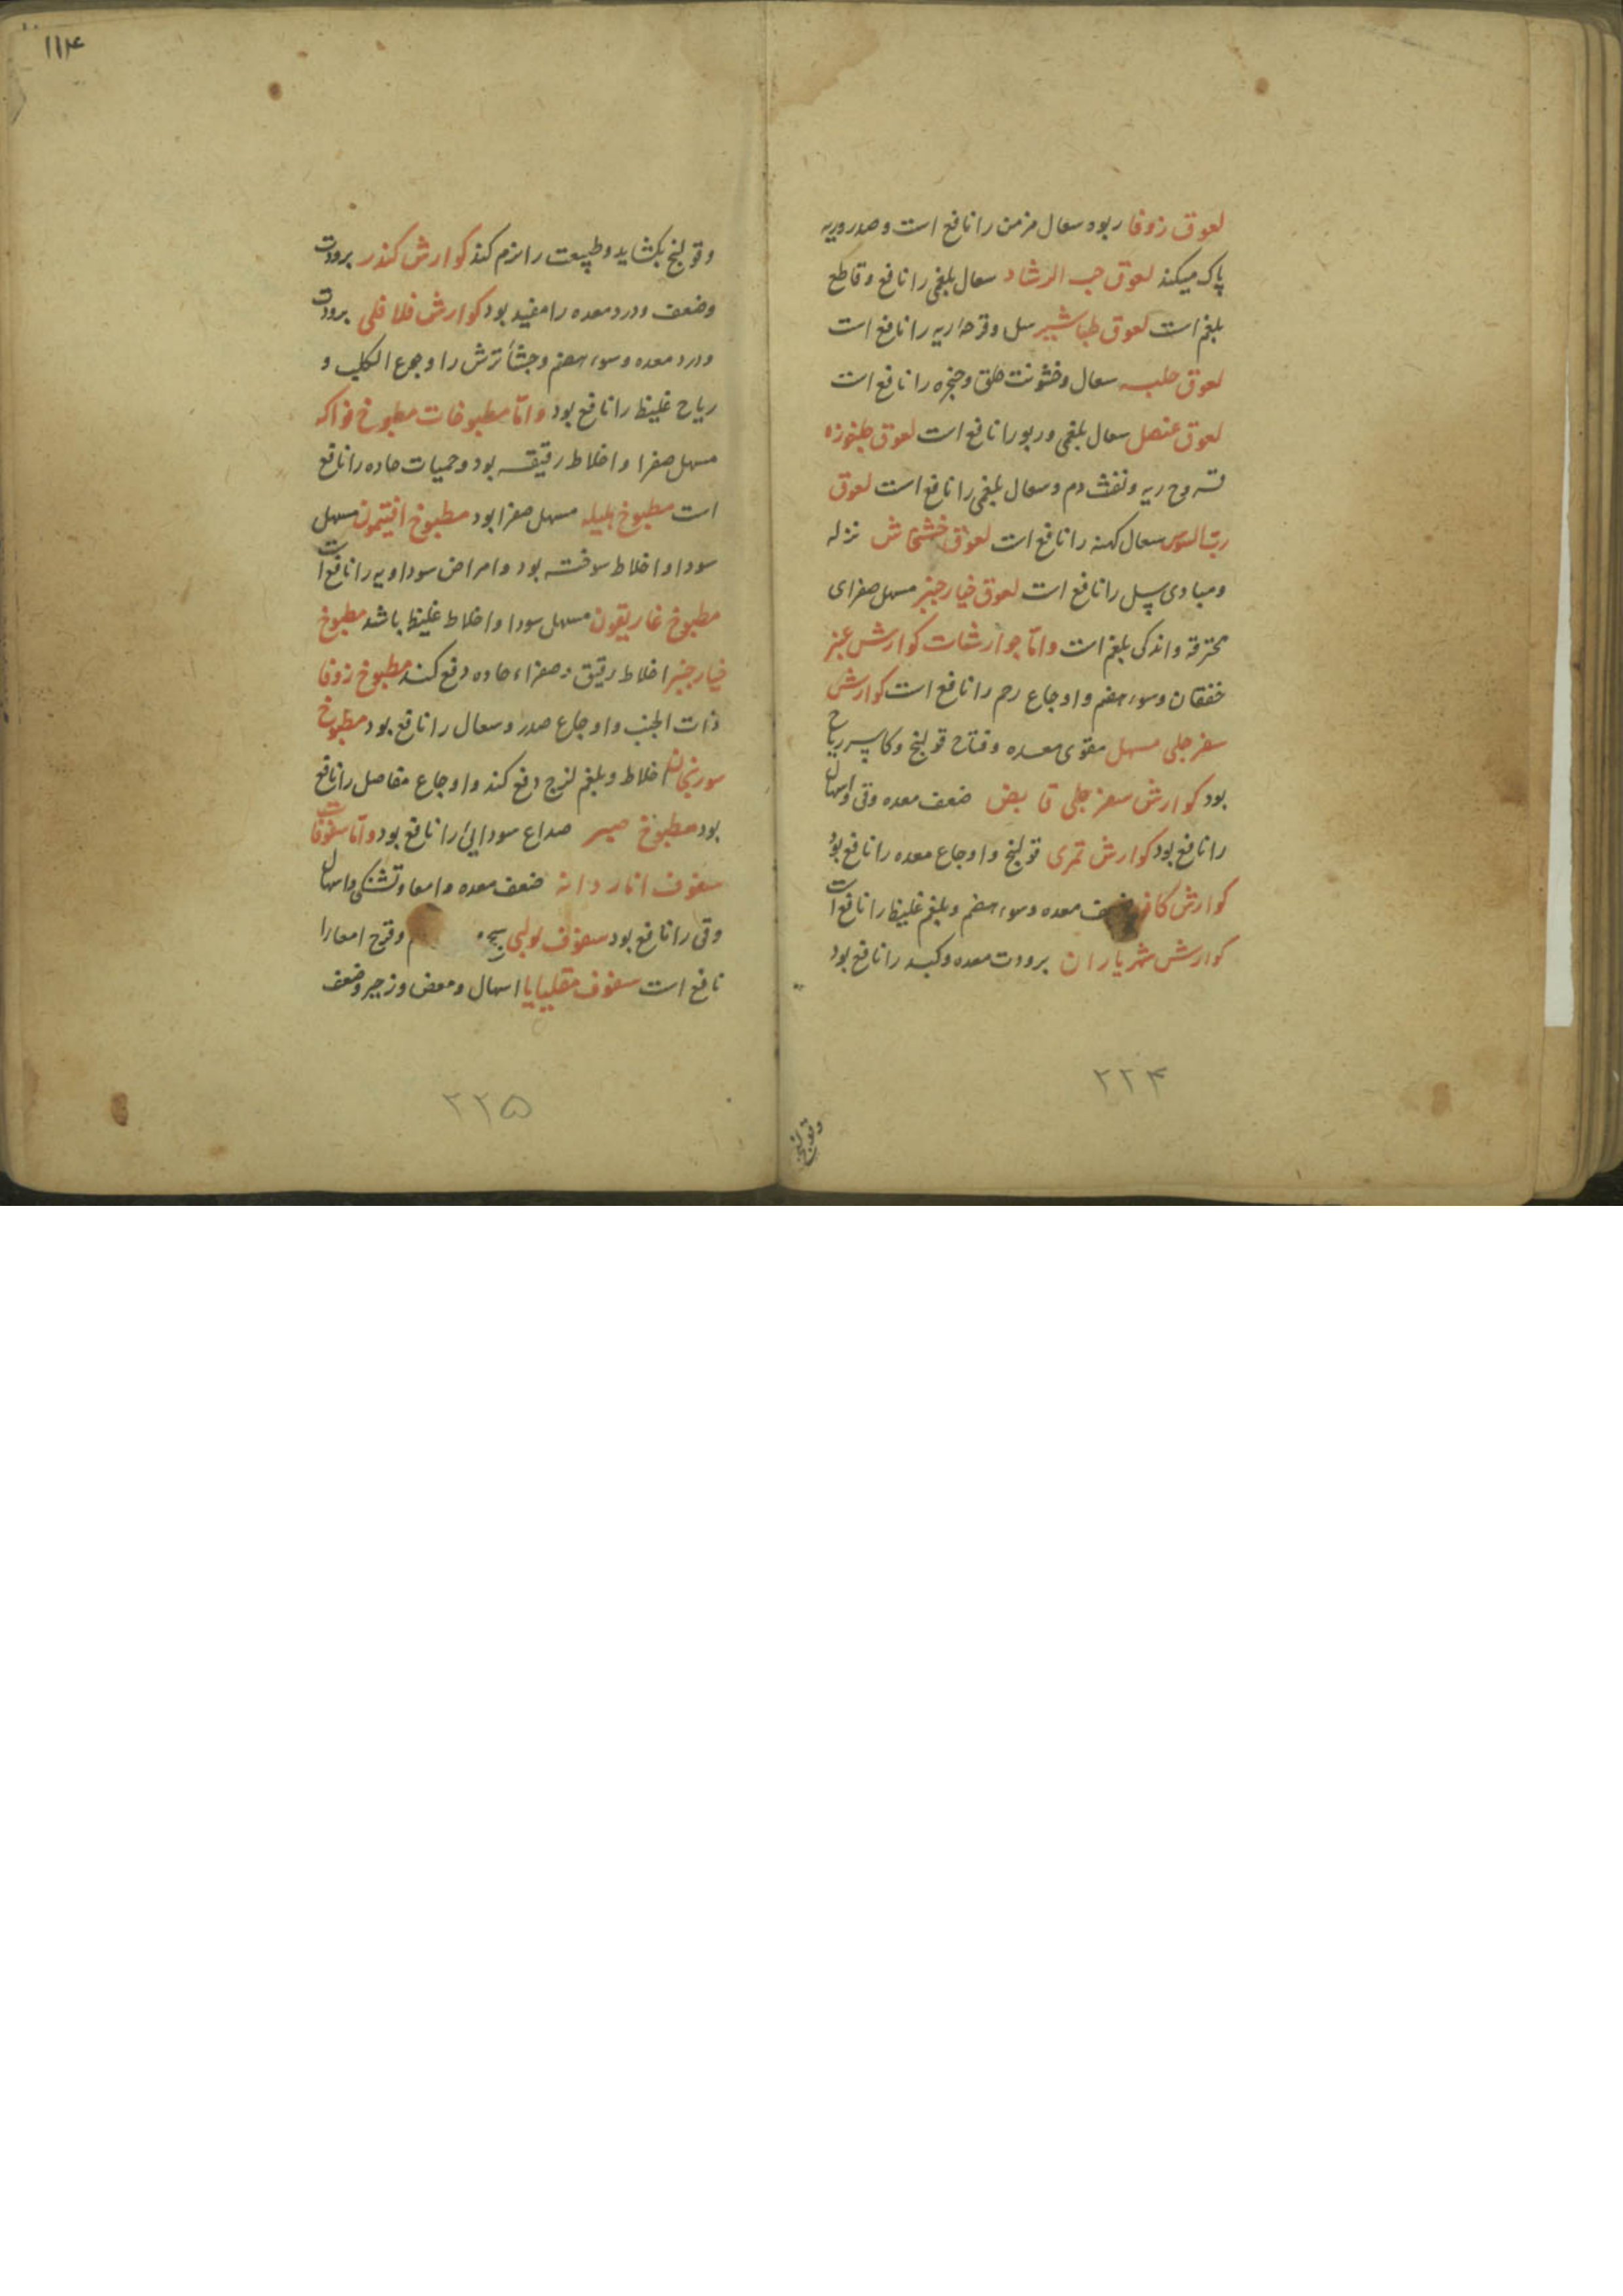 لعوق زوفا ربو و سعال مزمن را نافع است و صدر و ریه
پاک میکند لعوق حب الرشاد سعال بلغمی را نافع و قاطع
بلغم است لعوق طباشیر سل و قرحه ریه را نافع است
لعوق حلبه سعال و خشونت حلق و حنجره را نافع است
لعوق عنصل سعال بلغمی و ربو را نافع است لعوق جلغوزه
قروح ریه و نفث دم و سعال بلغمی را نافع است لعوق
رب السوس سعال کهنه را نافع است لعوق خشخاش نزله
و مبادی سل را نافع است لعوق خیارچنبر مسهل صفرای
محترقه و اندکی بلغم است و اما جوارشات کوارش عنبر
خفقان و سوء هضم و اوجاع رحم را نافع است کوارش
سفرجلی مسهل مقوی معده و فتاح قولنج و کاسر ریاح
بود کوارش سفرجلی قابض ضعف معده و قی و اسهال
را نافع بود کوارش تمری قولنج و اوجاع معده را نافع بود
کوارش معده و سوء هضم و بلغم غلیظ را نافع است
کوارش شهریاران برودت معده و کبد را نافع بود
۲۲۴
۱۱۴
و قولنج بکشاید و طبیعت را نرم کند کوارش کندر برودت
و ضعف و درد معده را مفید بود کوارش فلافلی برودت
و درد معده و سوء هضم و جشأ ترش را و جوع الکلب و
ریاح غلیظ را نافع بود و اما مطبوخات مطبوخ فواکه
مسهل صفرا و اخلاط رقیقه بود و حمیات حاده را نافع
است مطبوخ هلیله مسهل صفرا بود مطبوخ افتیمون مسهل
سودا و اخلاط سوخته بود و امراض سوداویه را نافع است
مطبوخ غاریقون مسهل سودا و اخلاط غلیظ باشد مطبوخ
خیارچنبر اخلاط رقیق و صفراء حاده دفع کند مطبوخ زوفا
ذات الجنب و اوجاع صدر و سعال را نافع بود مطبوخ
سورنجان اخلاط و بلغم لزج دفع کند و اوجاع مفاصل را نافع
بود مطبوخ صبر صداع سودایی را نافع بود و اما سفوفات
سفوف اناردانه ضعف معده و امعا و تشنکی و اسهال
و قی را نافع بود سفوف و قرح امعا را
نافع است سفوف مقلیایا اسهال و مغص و زحیر و ضعف
۲۲۵